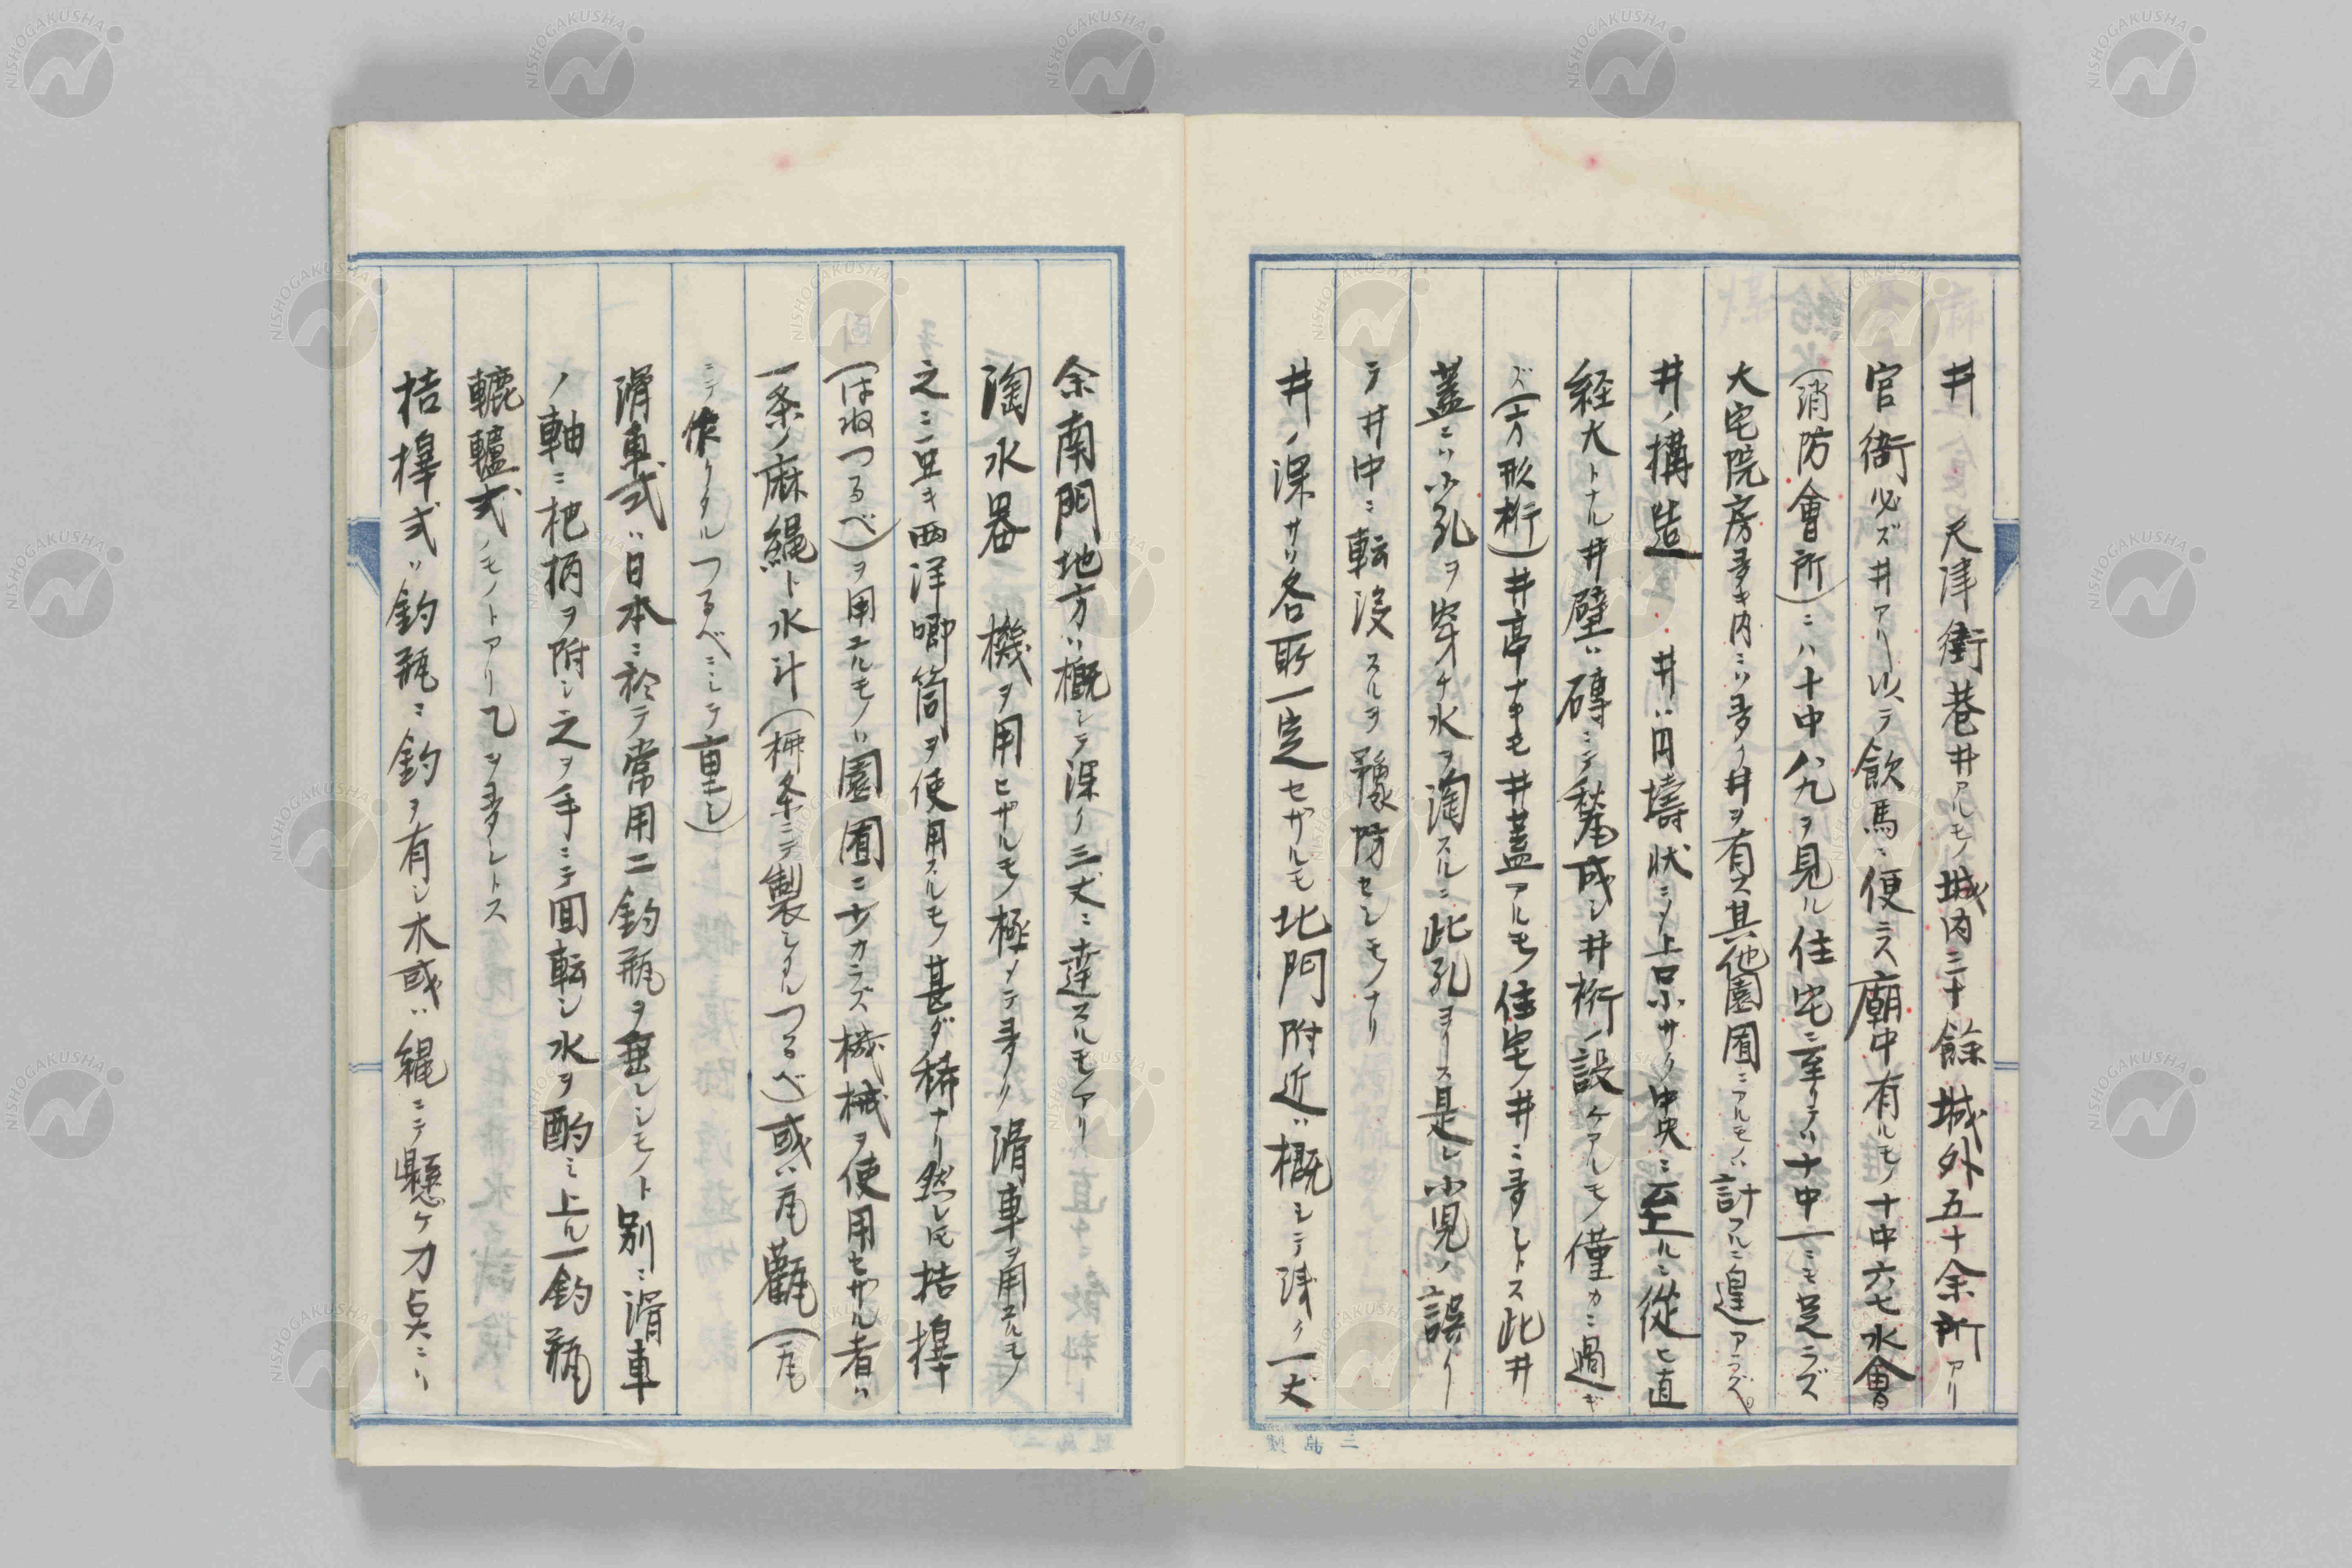 井　天津衛巷井アルモノ城内三十餘城外五十余所アリ
官衙必ズ井アリ以テ飲馬ニ便ニス廟中有ルモノ十中六七水會
(消防會所)ニハ十中八九ヲ見ル住宅ニ至リテハ十中一ニモ足ラズ
大宅院房多キ内ニハ多ク井ヲ有ス其他園圃ニアルモノハ計フルニ遑アラズ。
井ノ構造　井ハ円壔状ニメ上口小サク中央ニ至ルニ從ヒ直
経大トナル井壁ハ磚ニテ甃成シ井桁ノ設ケアルモノ僅カニ過ギ
ズ(方形桁)井亭ナキモ井蓋アルモノ住宅ノ井ニ多シトス此井
蓋ニハ小孔ヲ穿ケ水ヲ淘スルニ此孔ヨリス是レ小児ノ誤リ
テ井中ニ転没スルヲ豫防センモノナリ
井ノ深サハ各所一定セザルモ北門附近ハ概シテ浅ク一丈
余南門地方ハ概シテ深ク三丈ニ達スルモアリ
淘水器　機ヲ用ヒザルモノ極メテ多ク滑車ヲ用エルモノ
之ニ亞キ西洋喞筒ヲ使用スルモノ甚ダ稀ナリ然レ𪜈桔槹
(はねつるべ)ヲ用エルモノハ園圃ニ少カラズ機械ヲ使用セザル者ハ
一条ノ麻繩ト水斗(柳条ニテ製シタルつるべ)或ハ瓦罐(瓦
ニテ作リタルつるべニシテ重シ)
滑車式ハ日本ニ於テ常用二釣瓶ヲ垂レシモノト別ニ滑車
ノ軸ニ杷柄ヲ附シ之ヲ手ニテ囬転シ水ヲ酌ミ上ル一釣瓶
轆轤式ノモノトアリ乙ヲ多シトス
桔槹式ハ釣瓶ニ釣ヲ有シ木或ハ縄ニテ懸ケ力点ニハ